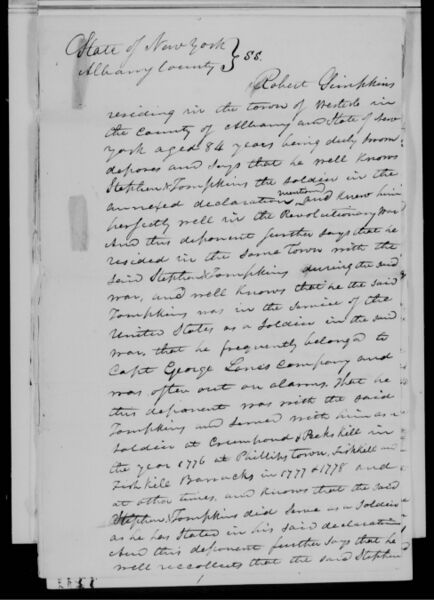 State of New York } SS.
Albany County
Robert Simpkins
residing in the town of Westerlo in
the County of Albany and State of New
york aged 84 years being duly sworn
deposes and says that he well knows
Stephen Tompkins the soldier in the
annexed declaration mentioned and knew him
perfectly well in the Revolutionary War
And this deponent further says that he
resided in the same town with the
said Stephen Tompkins during the said
war, and well knows that he the said
Tompkins was in the service of the
United States as a soldier in the said
war, that he frequently belonged to
Capt George Lanes company and
was often out on alarms. That he
this deponent was with the said
Tompkins and served with him as a
soldier at Crumpond & Pekskill in
the year 1776 at Phillipstown, Fishkill and
Fishkill Barracks in 1777 & 1778 and
at other times, and knows that the said
Stephen Tompkins did serve as a soldier
as he has stated in his said declaration
And this deponent further says that he
well reccollects that the said Stephen